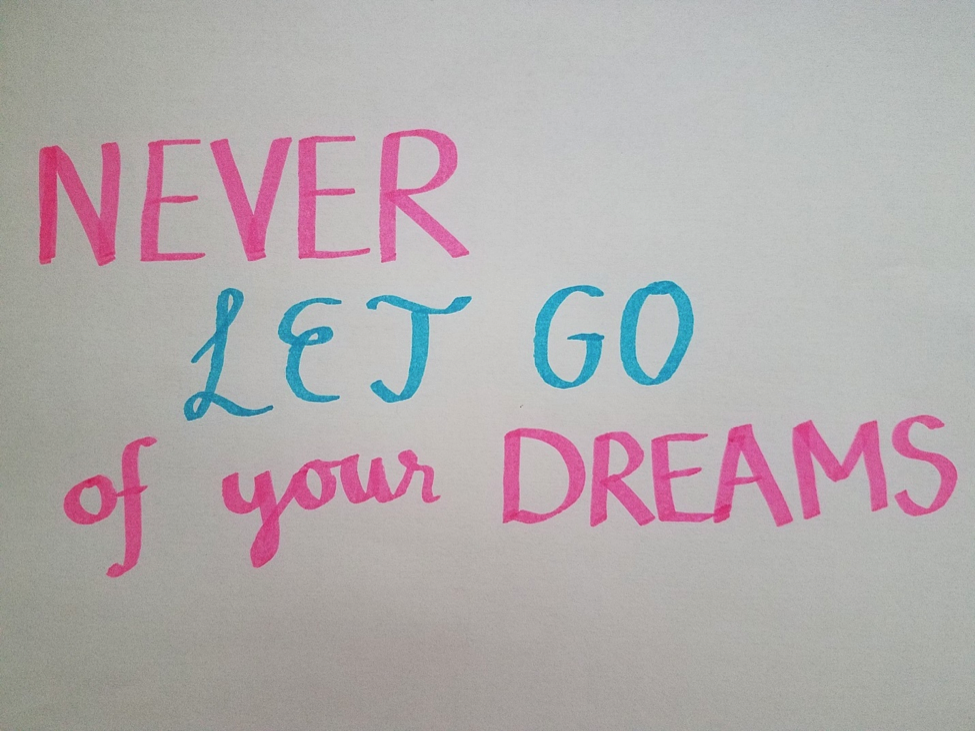 NEVER
LET GO
of your DREAMS